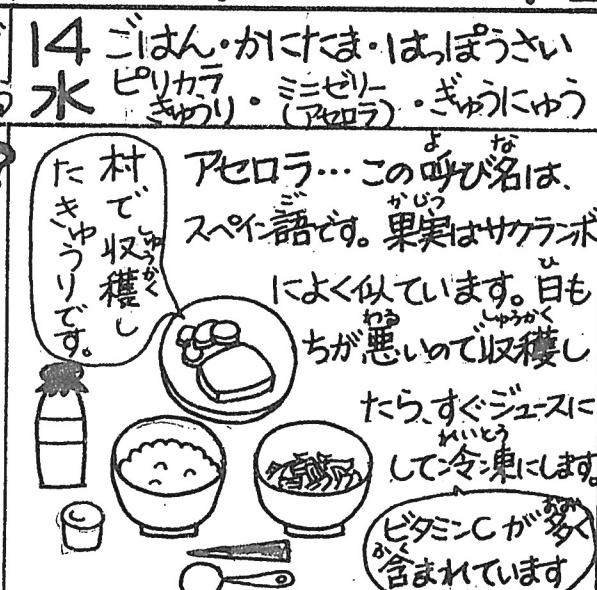 14
水
ごはん・かにたま・はっぽうさい
ピリカラきゅうり・ミニゼリー(アセロラ)・ぎゅうにゅう
村で収穫し
たきゅうりです。
アセロラ…この呼び名は、
スペイン語です。果実はサクランボ
によく似ています。日も
ちが悪いので収穫し
たら、すぐジュースに
して冷凍にします。
ビタミンCが多く
含まれています